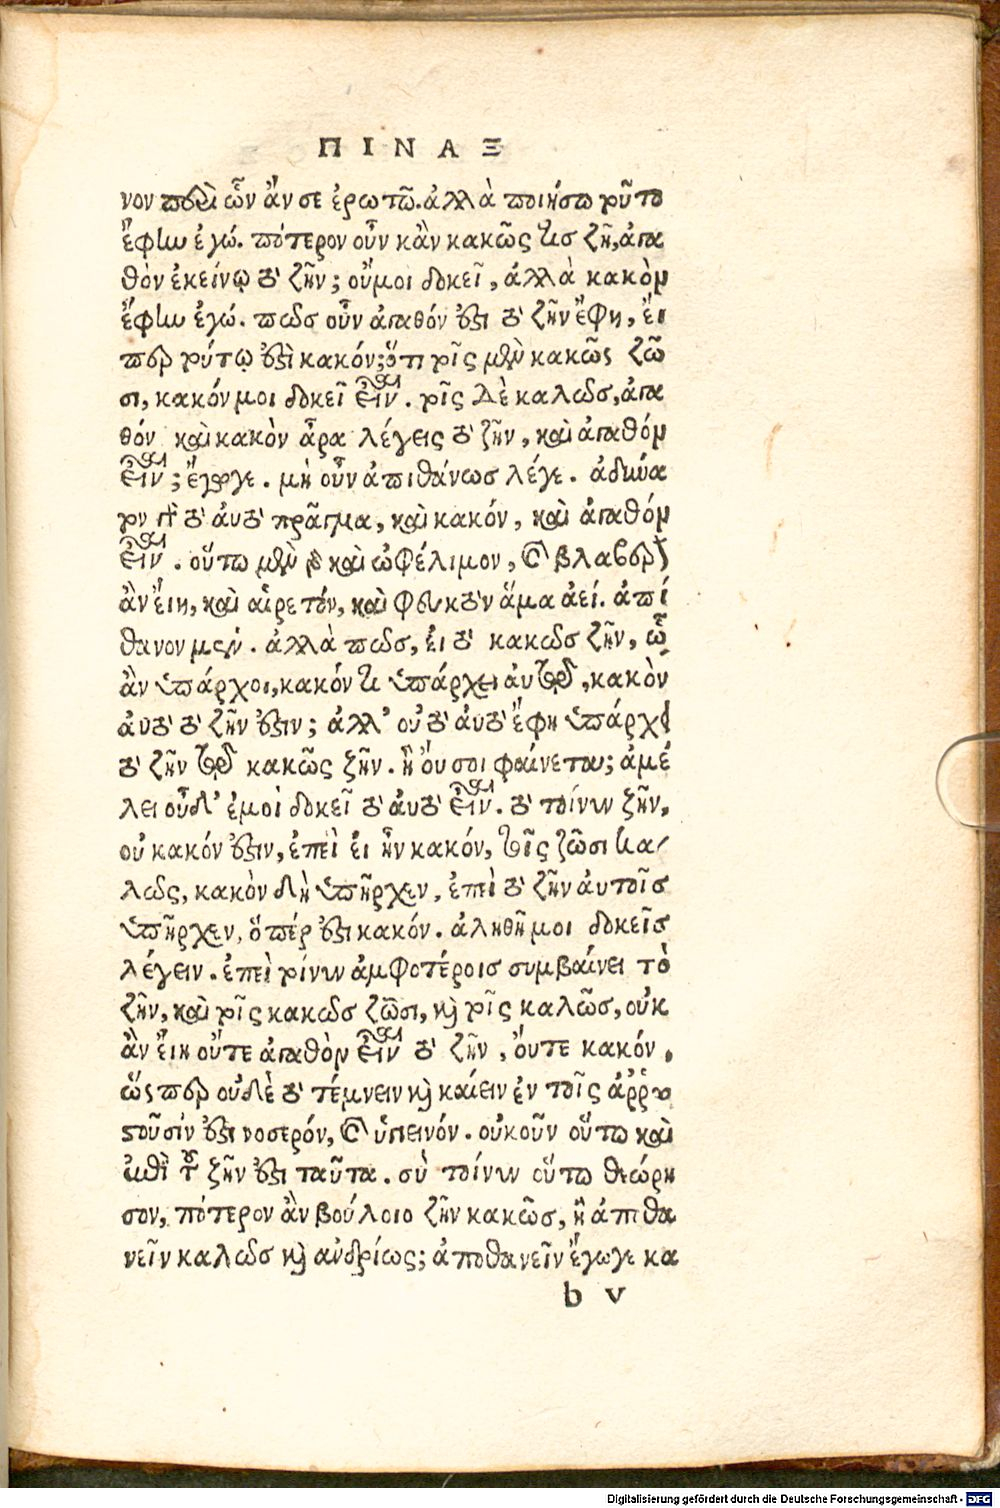 ΠΙΝΑΞ
νον περὶ ὧν ἄν σε ἐρωτῶ. ἀλλὰ ποιήσω τοῦτο
ἔφην ἐγώ. πότερον οὖν κἂν κακῶς τις ζῇ, ἀγα
θὸν ἐκείνῳ τὸ ζῆν; οὔ μοι δοκεῖ, ἀλλὰ κακὸν
ἔφην ἐγώ. πῶς οὖν ἀγαθόν ἐστι τὸ ζῆν ἔφη, εἴ
περ τούτῳ ἐστὶ κακόν; ὅτι τοῖς μὲν κακῶς ζῶ
σι, κακόν μοι δοκεῖ εἶναι. τοῖς δὲ καλῶς, ἀγα
θόν καὶ κακὸν ἆρα λέγεις τὸ ζῆν, καὶ ἀγαθόν
εἶναι; ἔγωγε. μὴ οὖν ἀπιθάνως λέγε. ἀδύνα
τον γὰρ τὸ αὐτὸ πρᾶγμα, καὶ κακόν, καὶ ἀγαθόν
εἶναι. οὕτω μὲν γὰρ καὶ ὠφέλιμον, καὶ βλαβερὸν
ἂν εἴη, καὶ αἱρετόν, καὶ φευκτὸν ἅμα ἀεί. ἀπί
θανον μέν. ἀλλὰ πῶς, εἰ τὸ κακῶς ζῆν, ᾧ
ἂν ὑπάρχοι, κακόν τι ὑπάρχει αὐτῷ, κακὸν
αὐτὸ τὸ ζῆν ἐστιν; ἀλλ' οὐ τὸ αὐτὸ ἔφη ὑπάρχει
τὸ ζῆν τῷ κακῶς ζῆν. ἢ οὔ σοι φαίνεται; ἀμέ
λει οὐδ' ἐμοὶ δοκεῖ τὸ αὐτὸ εἶναι. τὸ τοίνυν ζῆν,
οὐ κακόν ἐστιν, ἐπεὶ εἰ ἦν κακόν, τοῖς ζῶσι κα
λῶς, κακὸν δὴ ὑπῆρχεν, ἐπεὶ τὸ ζῆν αὐτοῖς
ὑπῆρχεν, ὅπέρ ἐστι κακόν. ἀληθῆ μοι δοκεῖς
λέγειν. ἐπεὶ τοίνυν ἀμφοτέροις συμβαίνει τὸ
ζῆν, καὶ τοῖς κακῶς ζῶσι, καὶ τοῖς καλῶς, οὐκ
ἂν εἴη οὔτε ἀγαθὸν εἶναι τὸ ζῆν, οὔτε κακόν.
ὥσπερ οὐδὲ τὸ τέμνειν καὶ καίειν ἐν τοῖς ἀῤῥω
στοῦσίν ἐστι νοσερόν, καὶ ὑγιεινόν. οὐκοῦν οὕτω καὶ
ἐπὶ τοῦ ζῆν ἐστι ταῦτα. σὺ τοίνυν οὕτω θεώρη
σον, πότερον ἂν βούλοιο ζῆν κακῶς, ἢ ἀποθα
νεῖν καλῶς καὶ ἀνδρίως; ἀποθανεῖν ἔγωγε κα
b v
Digitalisierung gefördert durch die Deutsche Forschungsgemeinschaft - DFG